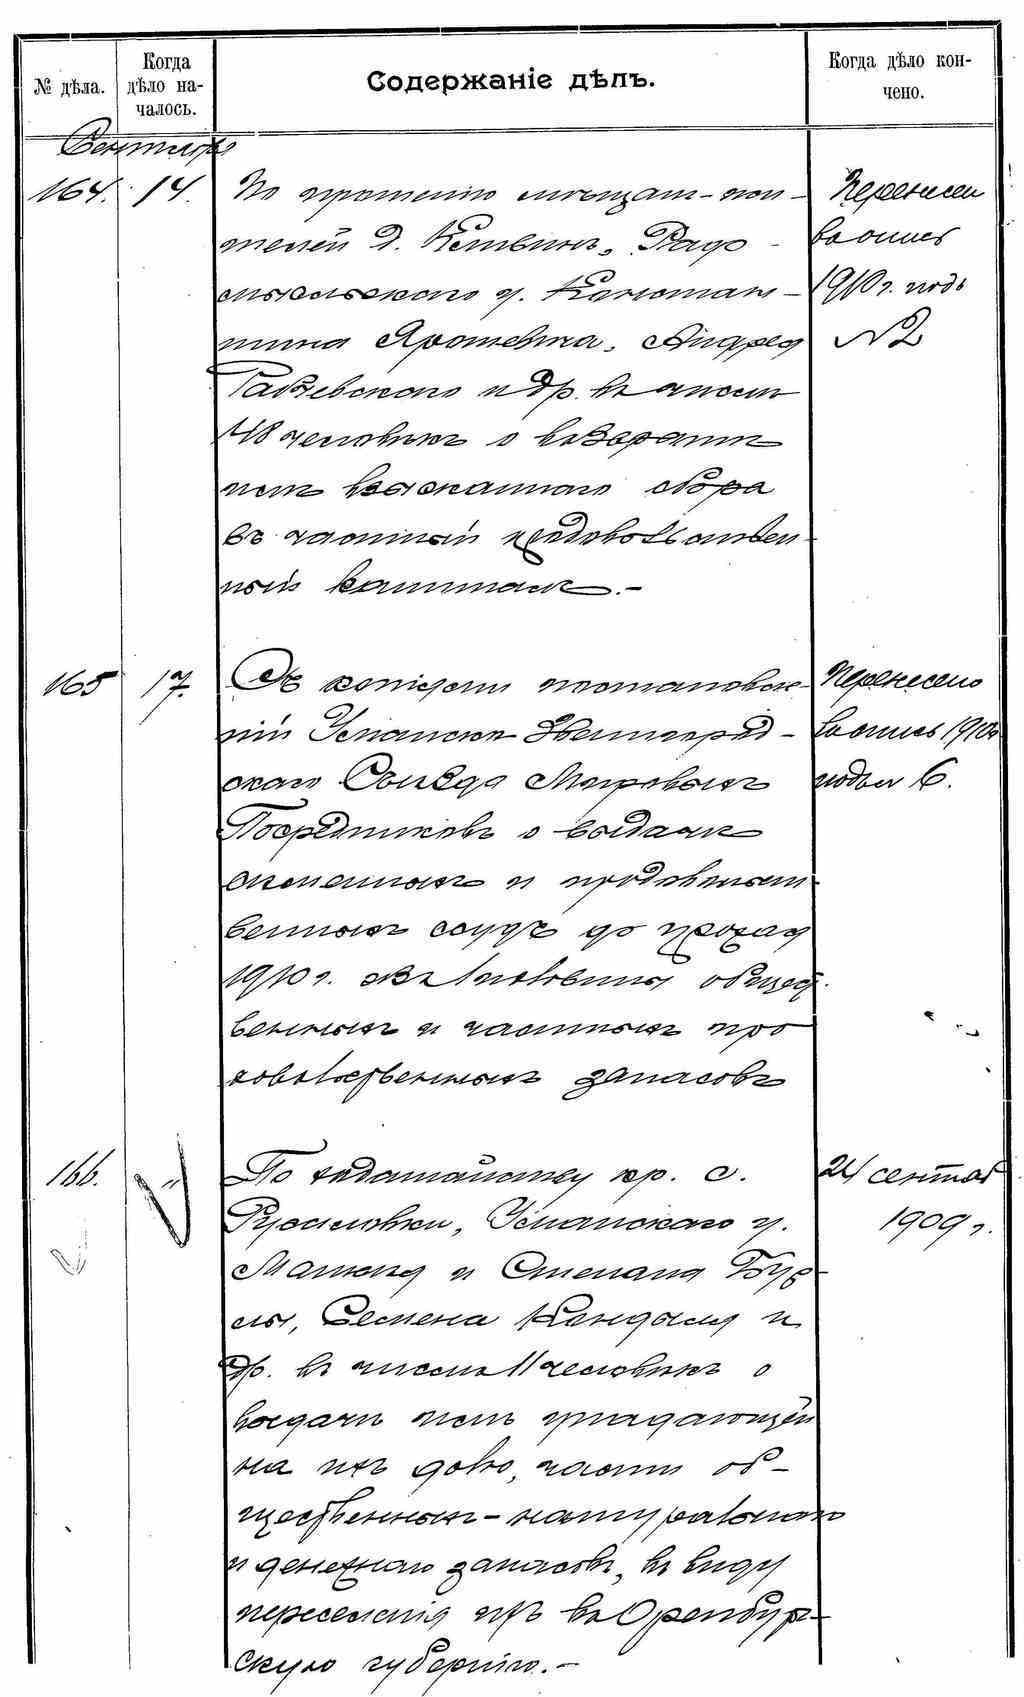 № дѣла.
Когда дѣло началось.
Содержаніе дѣлъ.
Когда дѣло кончено.
Сентября
164. 14.
По прошенію мѣщан-жи-
телей д. Радо-
мысльскаго у. Констан-
тина Ярошенка, Андрея
Гаевскаго и др. въ числѣ
48 человѣкъ о возвратѣ
имъ взысканнаго сбора
въ частный продовольствен-
ный капиталъ.-
Перенесен
въ опись
1910 г. подъ
№ 2
165 17.
Съ копіями постановле-
ній Уманско-Звенигород-
скаго Съѣзда Мировыхъ
Посредниковъ о выдачѣ
сѣменныхъ и продовольст-
венныхъ ссудъ до урожая
1910 г. изъ половины общест-
венныхъ и частныхъ про
довольственныхъ запасовъ
Перенесено
въ опись 1910 г.
подъ № 6.
166. "
По ходатайству кр. с.
Русаловки, Уманскаго у.
и Степана Бур-
лы, Семена Кендыля и
др. въ числѣ 11 человѣкъ о
выдачѣ имъ упадающей
на ихъ долю, части об-
щественныхъ-натуральнаго
и денежнаго запасовъ, въ виду
переселенія ихъ въ Оренбург-
скую губернію.-
24 сентяб
1909 г.